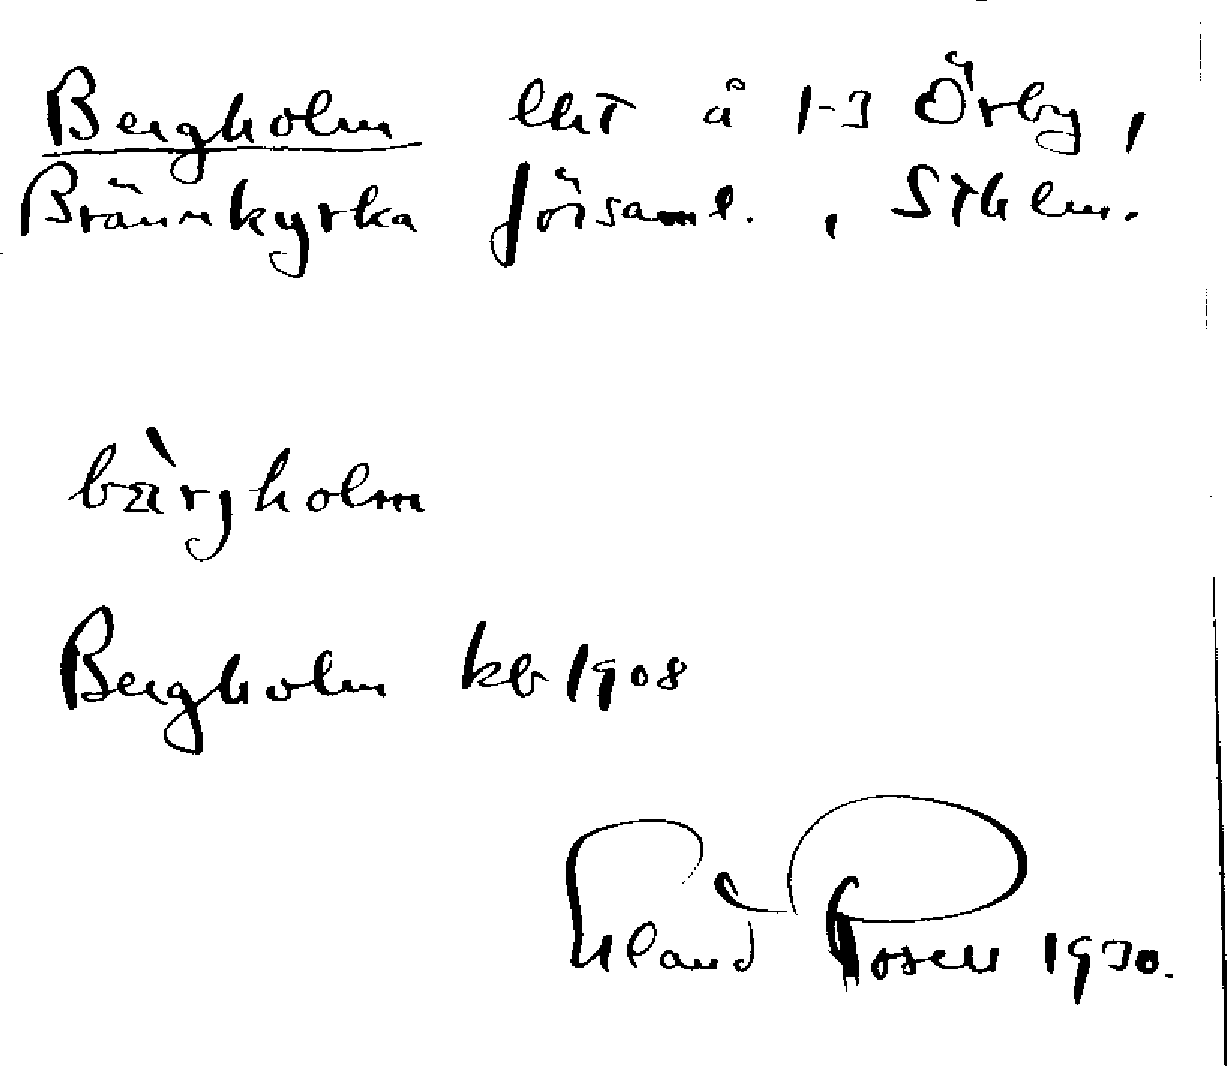 Bergholm lht å 1-3 Örby,
Brännkyrka församl., Sthlm.
bärgholm
Bergholm kb 1908
Erland Rosell 1930.